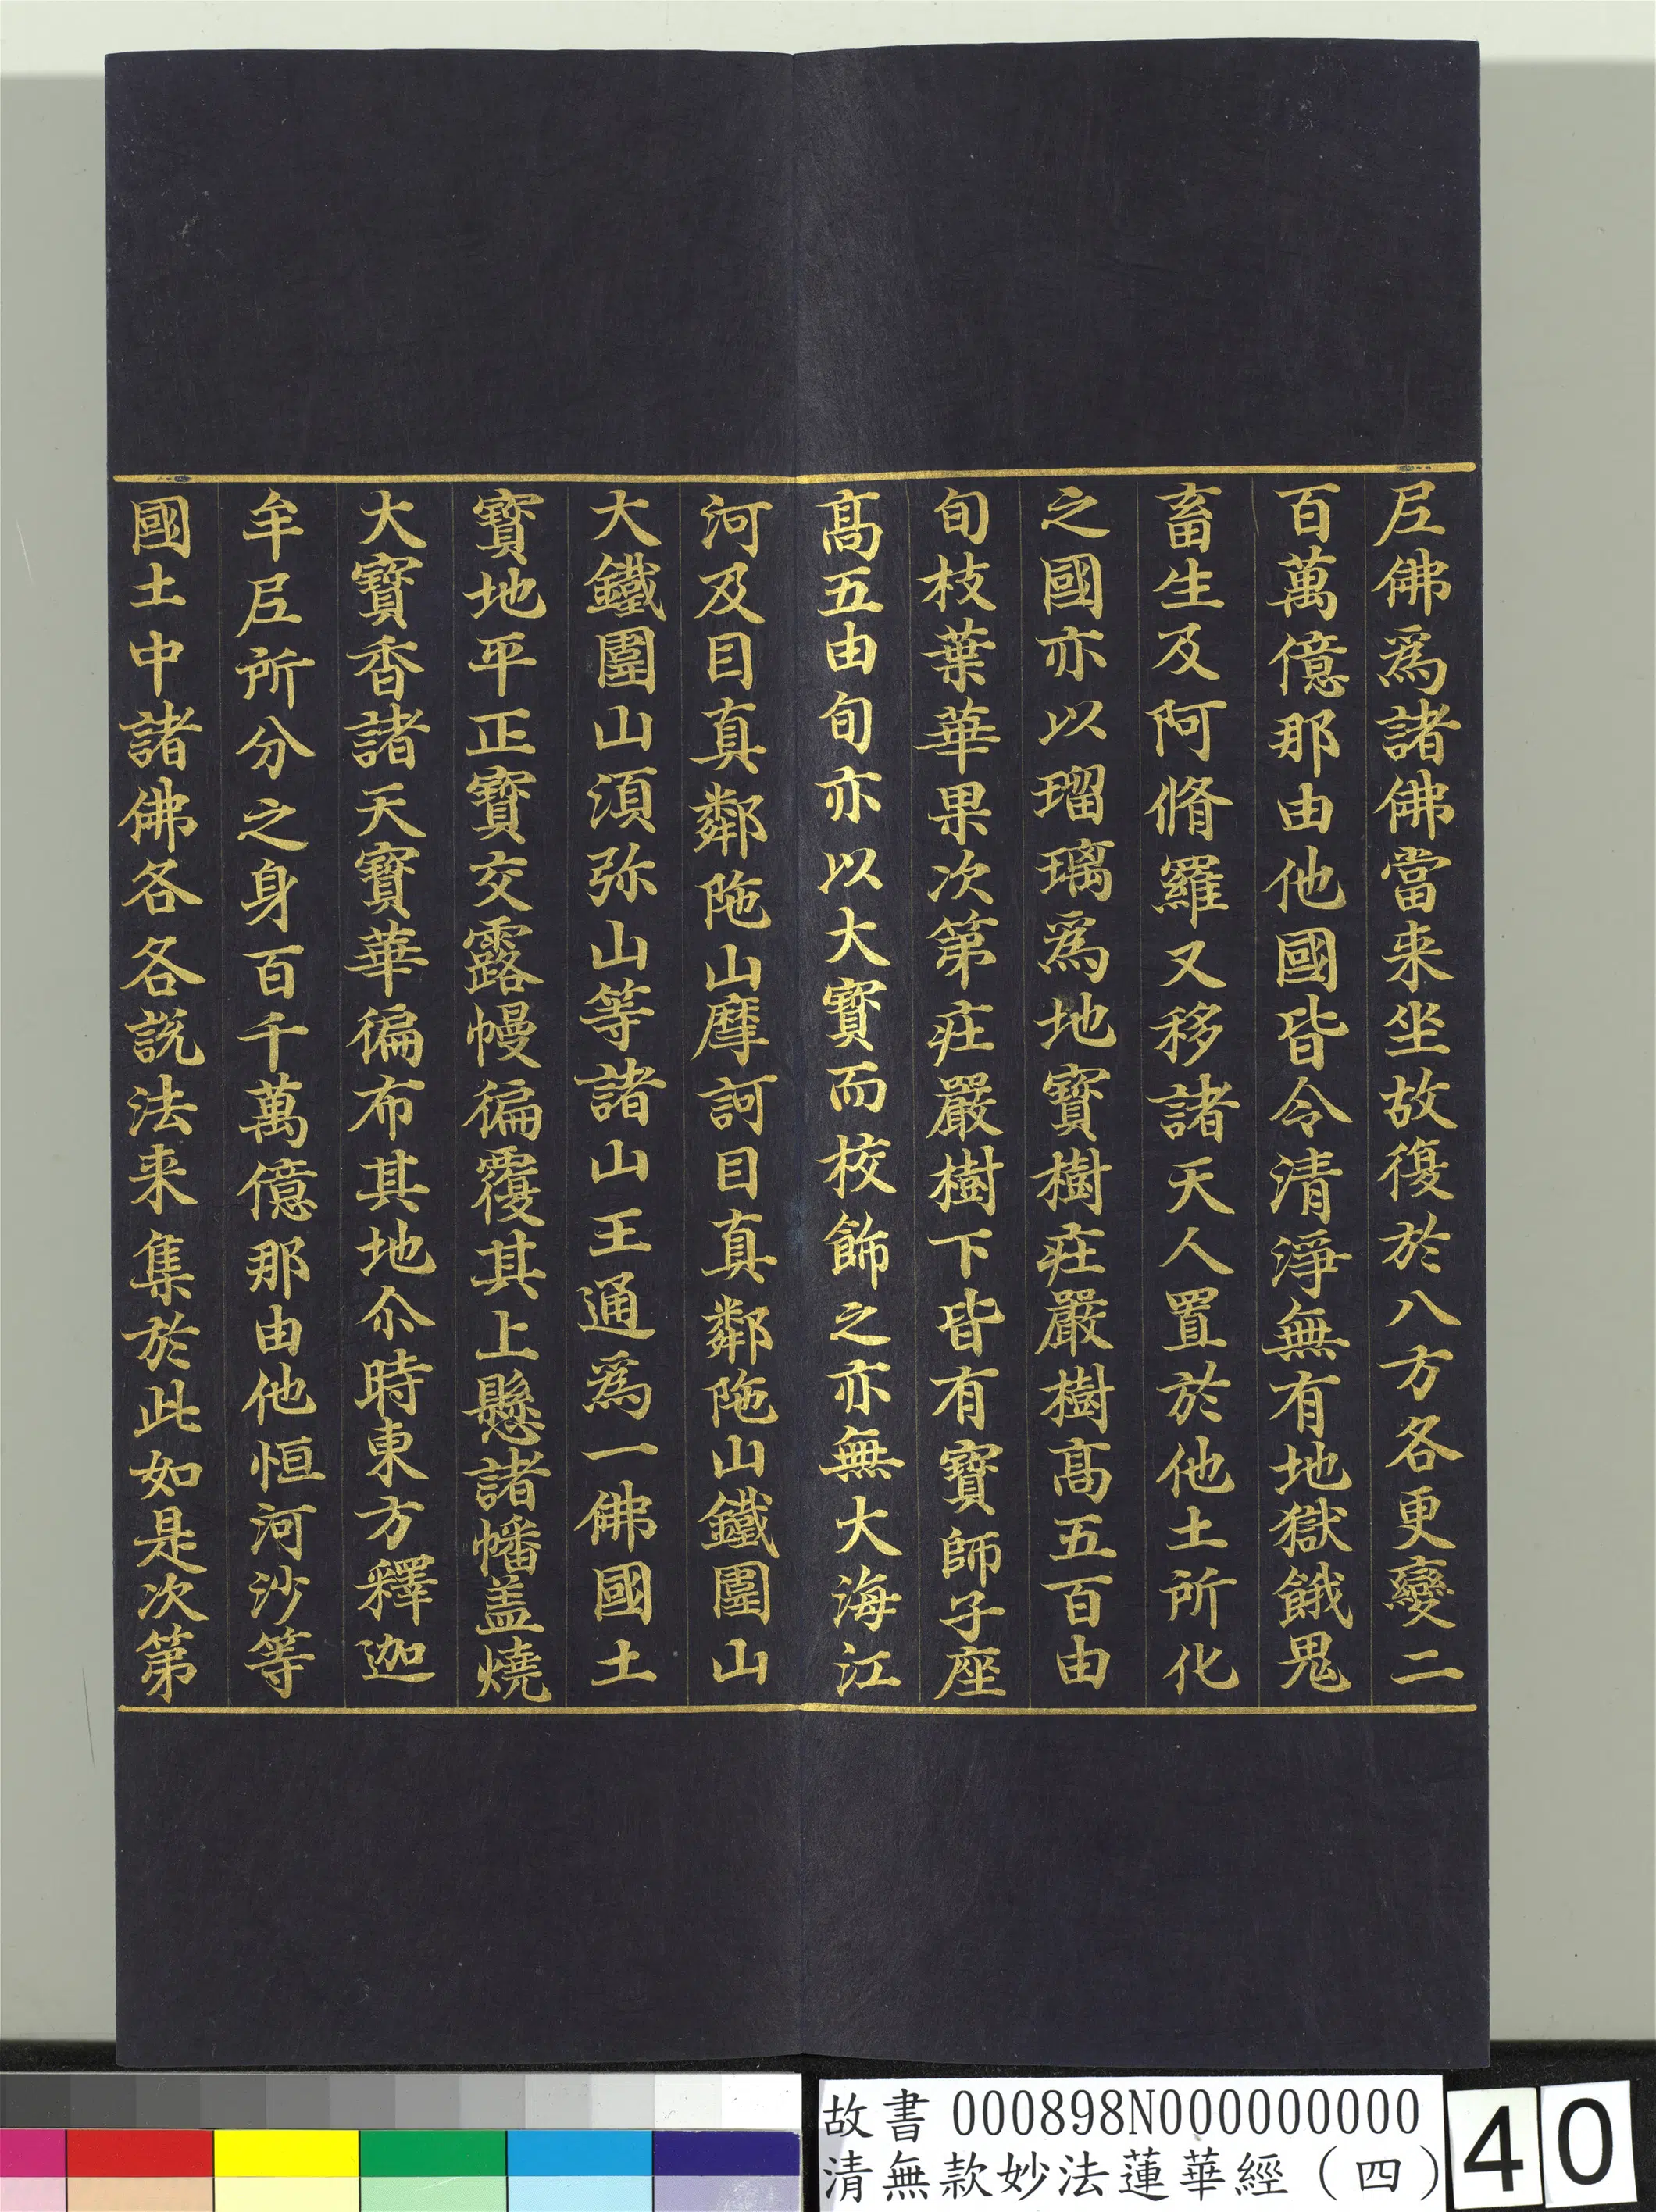 尼佛爲諸佛當来坐故復於八方各更變二
百萬億那由他國皆令清淨無有地獄餓鬼
畜生及阿脩羅又移諸天人置於他土所化
之國亦以瑠璃爲地寶樹莊嚴樹髙五百由
旬枝葉華果次第莊嚴樹下皆有寶師子座
髙五由旬亦以大寶而校飾之亦無大海江
河及目真鄰陁山摩訶目真鄰陁山鐵圍山
大鐵圍山須弥山等諸山王通爲一佛國土
寶地平正寶交露幔徧覆其上懸諸幡盖燒
大寶香諸天寶華徧布其地尒時東方釋迦
牟尼所分之身百千萬億那由他恒河沙等
國土中諸佛各各說法来集於此如是次第
故書 000898N000000000
清無款妙法蓮華經（四）
40